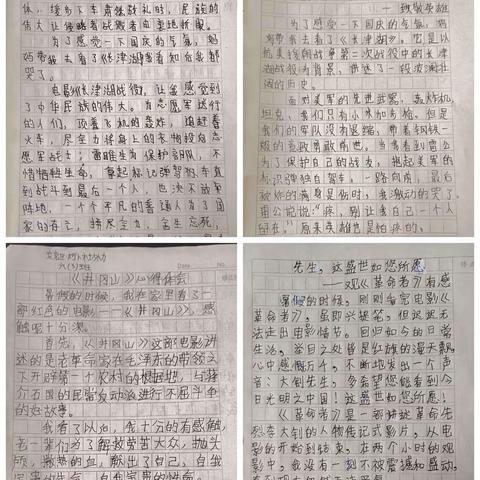 体，缓步下车肃敬礼时，民族的
伟大让侵略者战败者自
为了感受一下国庆的气氛，妈
妈带我去看了《长津湖》我看
哭了。
电影《长津湖战役》，让我感受到
了中华民族的伟大。为志愿军送行
的人们，顶着飞机的轰炸，追赶着
火车，尽全力将身上的衣物投向志
愿军战士；雷睢生为保护部队，不
惜牺牲生命，拿起标识弹驾驶车直
到战斗到最后一个人，也决不放弃
阵地，一个个平凡的普通人为了国
家的存亡，竭尽全力，舍生忘死，
——致敬英雄
为了感受一下国庆的气氛，妈
妈带我去看了《长津湖》。它是以
抗美援朝战争第二次战役中的长津
湖战役为背景，讲述了一段波澜壮
阔的历史。
面对美军的先进武器，轰炸机
坦克，我们只有小米加步枪。但是
我们的军队没有退缩，带着钢铁一
般的意志勇敢应战。当我看到雷公
为了保护自己的战友，抱起美军的
标识弹独自驾车，一路向前，最后
被炸的满身是伤时，我激动的哭了
雷公说“疼，别让我自己一个人
留在。”原来英雄也是怕疼的。
六（3）班
《井冈山》心得体会
暑假的时候，我在家里看了一
部红色的电影——《井冈山》，感
触呢十分深。
首先，《井冈山》这部电影讲
述的是老革命家在毛泽东的带领之
下开辟第一个农村的根据地，与蒋
介石国的民党发动派进行不屈斗争
的故事。
我看了以后，我十分的有感触，
老一辈们为了解救劳苦大众，抛头
颅，撒热的血，献出了自己，自我
宝贵的生命
先生，这盛世如您所愿
——观《革命者》有感
暑假的时候，刚刚看完电影《
革命者》，虽即兴提笔，但迟迟无
法走出电影情节。回归如今的日常
生活，举目之处皆是红旗的漫天飘，
心中感慨万千，不断地发出一个声
音：大钊先生，多希望您能看到今
日光明之中国！这盛世如您所愿！
《革命者》是一部讲述革命先
烈李大钊的人物传记式影片，从电
影的开始到结束，在两个小时的观
影中，我没有一刻不被震撼和感动，